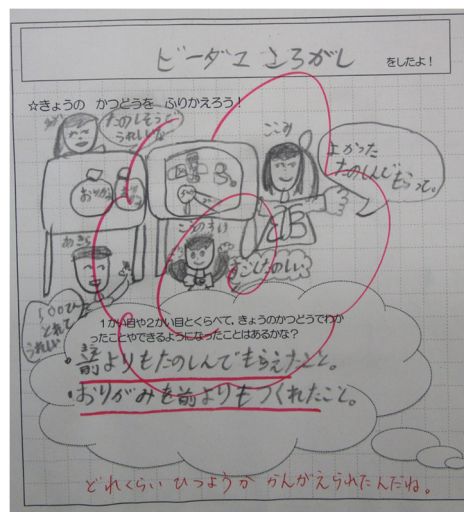 ビーダマ ころがし
をしたよ！
☆きょうの かつどうを ふりかえろう！
たのしそうで
うれしいな
おりがみ
B。
ここみ
よかった
たのしんで
もらって。
あきら
こうのすけ
B
すごしたのしい
うれしい
1かい目や2かい目とくらべて，きょうのかつどうでわか
ったことやできるようになったことはあるかな？
・前よりもたのしんでもらえたこと。
・おりがみを前よりもつくれたこと。
どれくらい ひつようか かんがえられたんだね。